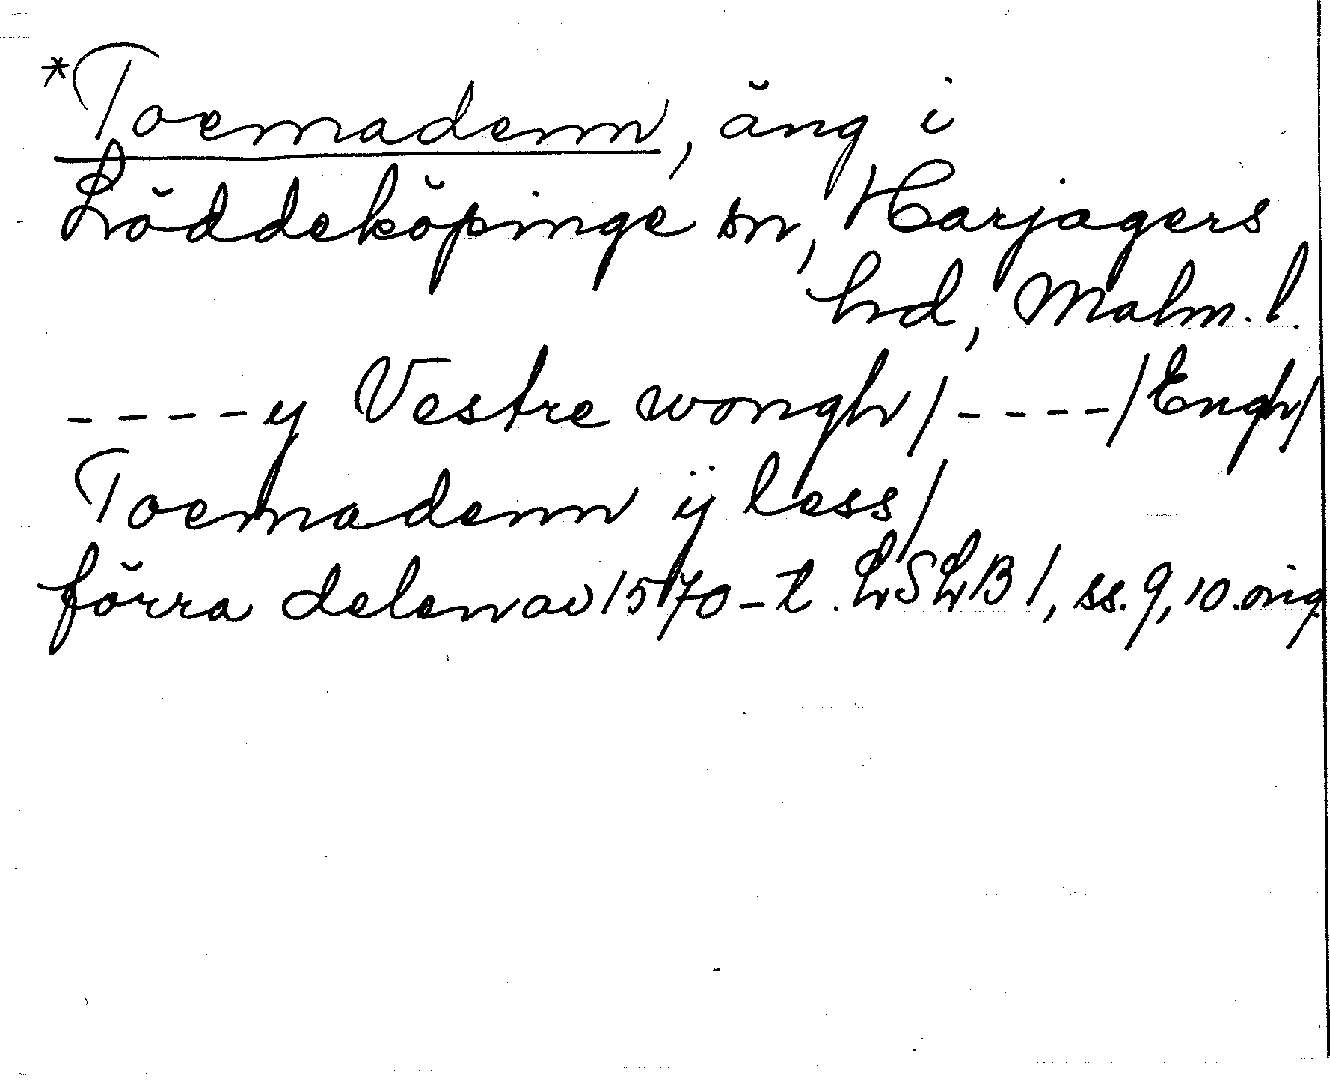 *Toemadenn, äng i
Löddeköpinge sn, Harjagers
hd, Malm. l.
----y Vestre wongh/----/Engh/
Toemadenn ÿ less/
förra delen av 1570-t. LSLB 1, ss. 9, 10. orig.